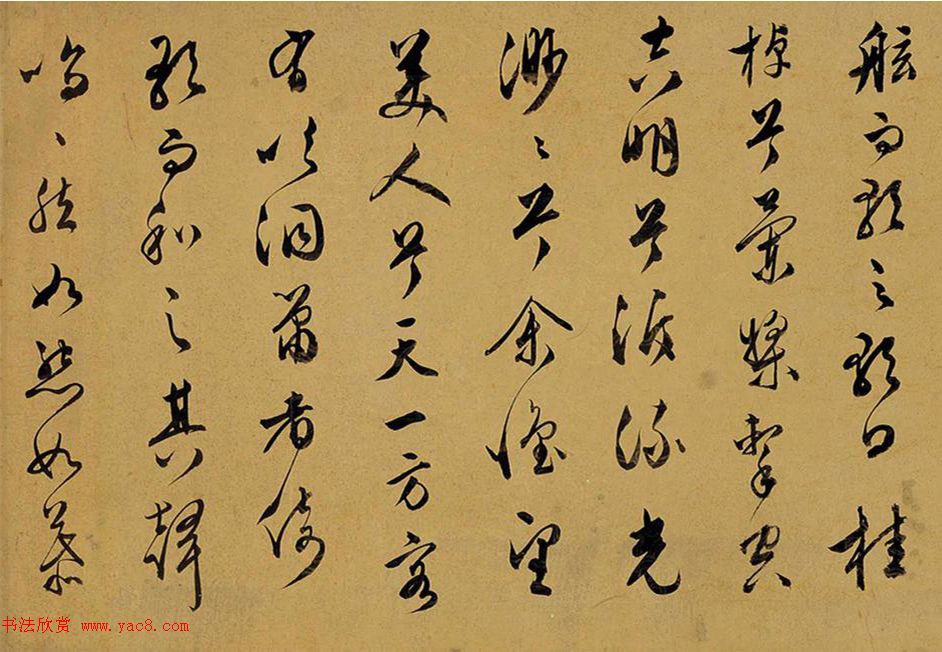 舷而歌之歌曰桂
棹兮蘭槳擊空
明兮泝流光
渺〻兮余懷望
美人兮天一方客
有吹洞簫者倚
歌而和之其聲
嗚〻然如怨如慕
书法欣赏 www.yac8.com